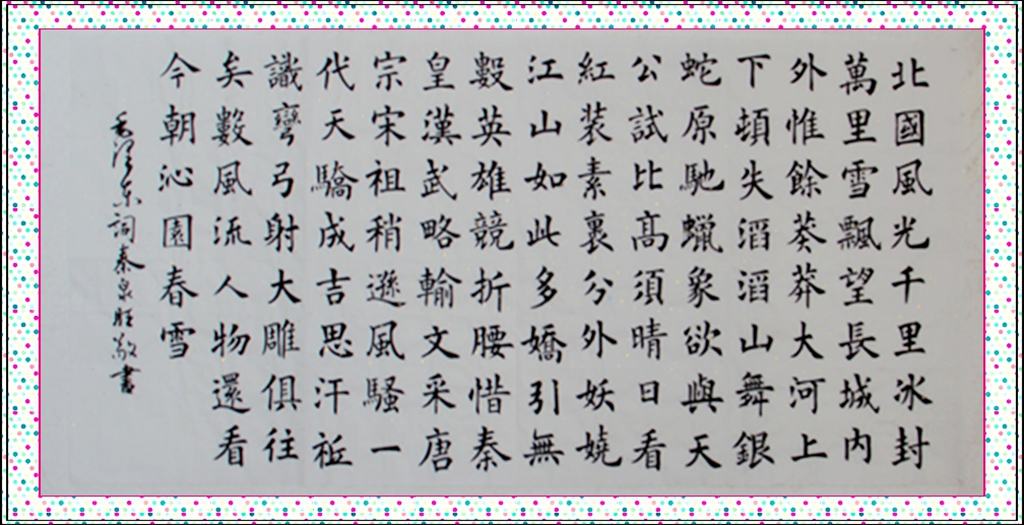 北國風光千里冰封
萬里雪飄望長城内
外惟餘葵莽大河上
下頓失滔滔山舞銀
蛇原馳蠟象欲與天
公試比高須晴日看
紅装素裹分外妖嬈
江山如此多嬌引無
數英雄競折腰惜秦
皇漢武略輸文采唐
宗宋祖稍遜風騷一
代天驕成吉思汗衹
識彎弓射大雕俱往
矣數風流人物還看
今朝沁園春雪
毛澤東詞秦泉敬書